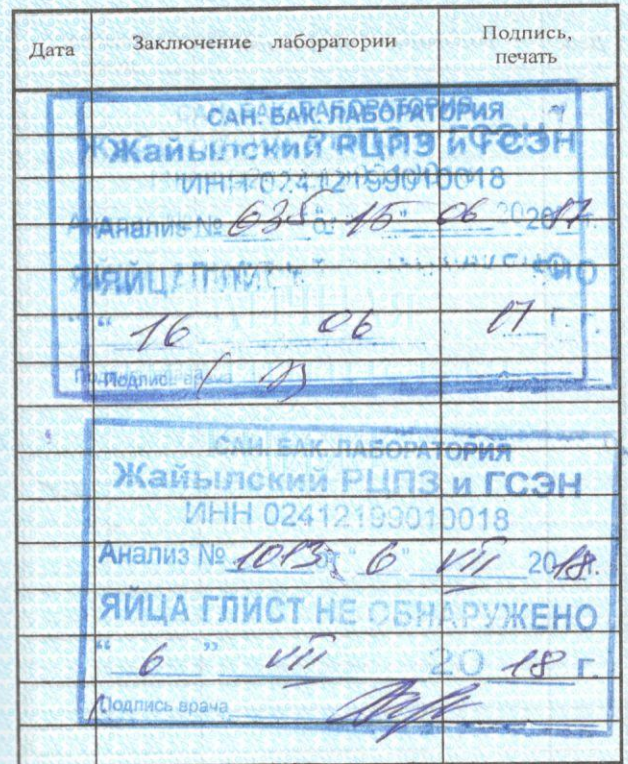 Дата Заключение лаборатории Подпись, печать
САН. БАК. ЛАБОРАТОРИЯ
Жайылский РЦПЗ и ГСЭН
ИНН 02412199010018
Анализ № 635 от "15" 06 2017 г.
ЯЙЦА ГЛИСТ
" 16 06 17 г.
Подпись врача
САН. БАК. ЛАБОРАТОРИЯ
Жайылский РЦПЗ и ГСЭН
ИНН 02412199010018
Анализ № 1013 от "6" VII 2018.
ЯЙЦА ГЛИСТ НЕ ОБНАРУЖЕНО
" 6 " VII 2018 г.
Подпись врача